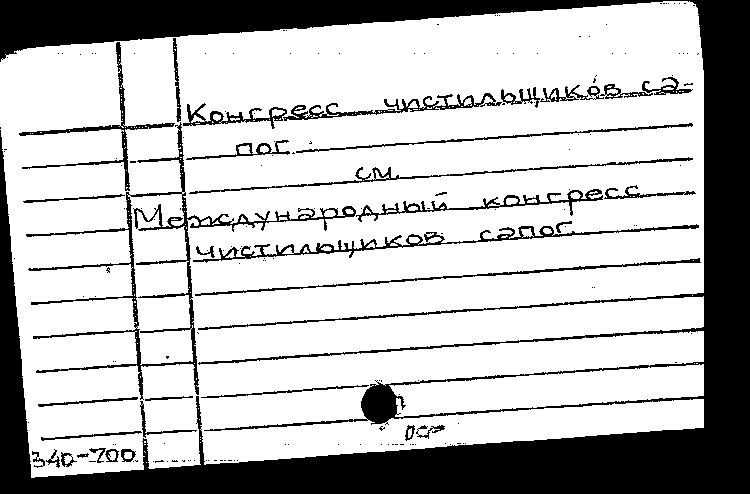 Конгресс чистильщиков са-
пог
см.
Международный конгресс
чистильщиков сапог
340-700